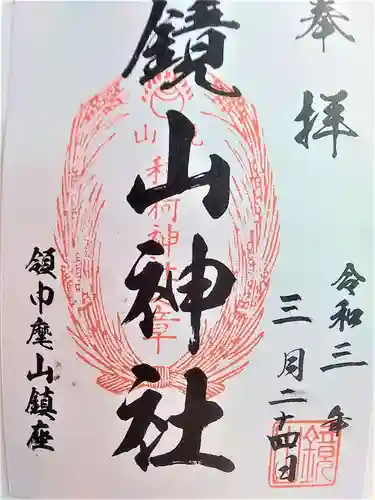 奉拝
令和三年
三月二十四日
鏡山神社
領巾麾山鎮座
鏡